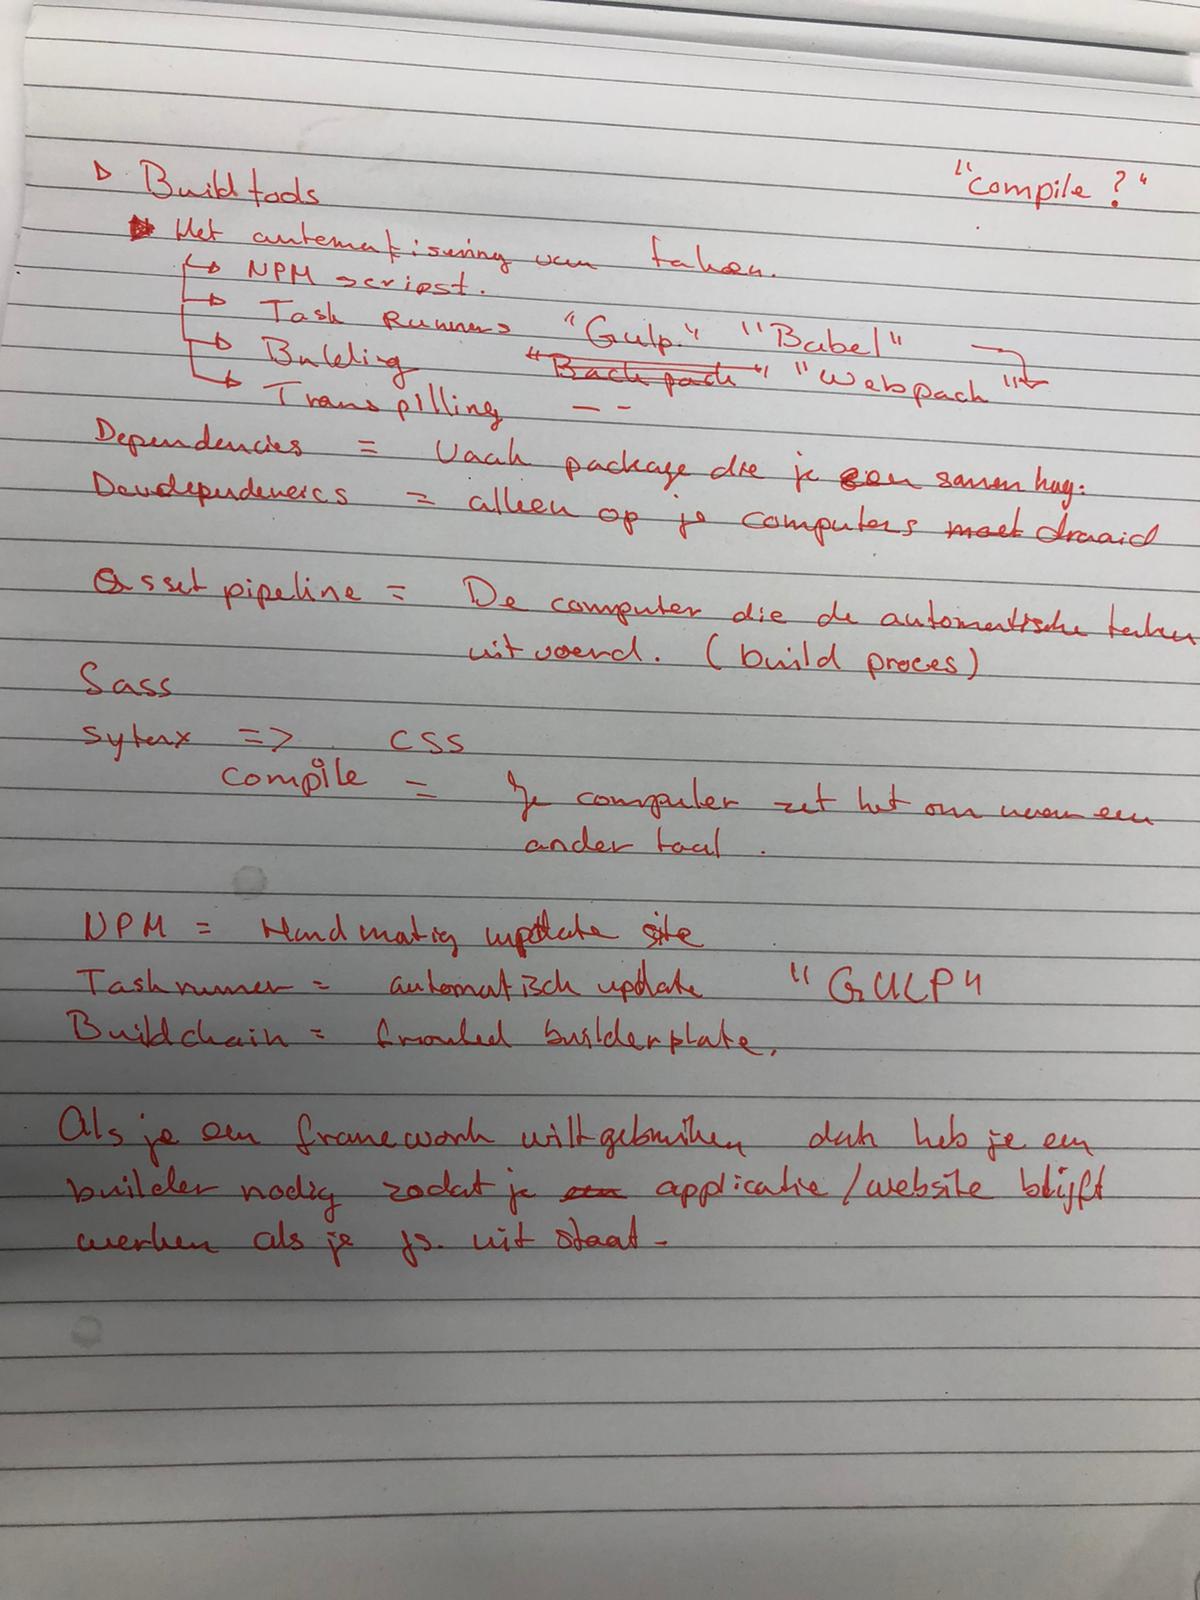 Buildtools
"compile?"
Het automatisering van taken.
NPM scripst.
Task Runners "Gulp" "Babel"
Bulding "Backpack" "Webpack"
Transpilling
Dependencies = Vaak package die je een samen
Devdependenercs = alleen op je computers moet draaid
Asset pipeline = De computer die de automatische taken
uitvoerd. (build proces)
Sass
syterx => CSS
compile = Je computer zet het om naar een
ander taal.
NPM = Handmatig update site
Taskrunner = automatisch update "GULP"
Buildchain = builderplate.
Als je een framework wilt gebruiken dah heb je een
builder nodig zodat je applicatie/website blijft
werken als je js. uit staat-